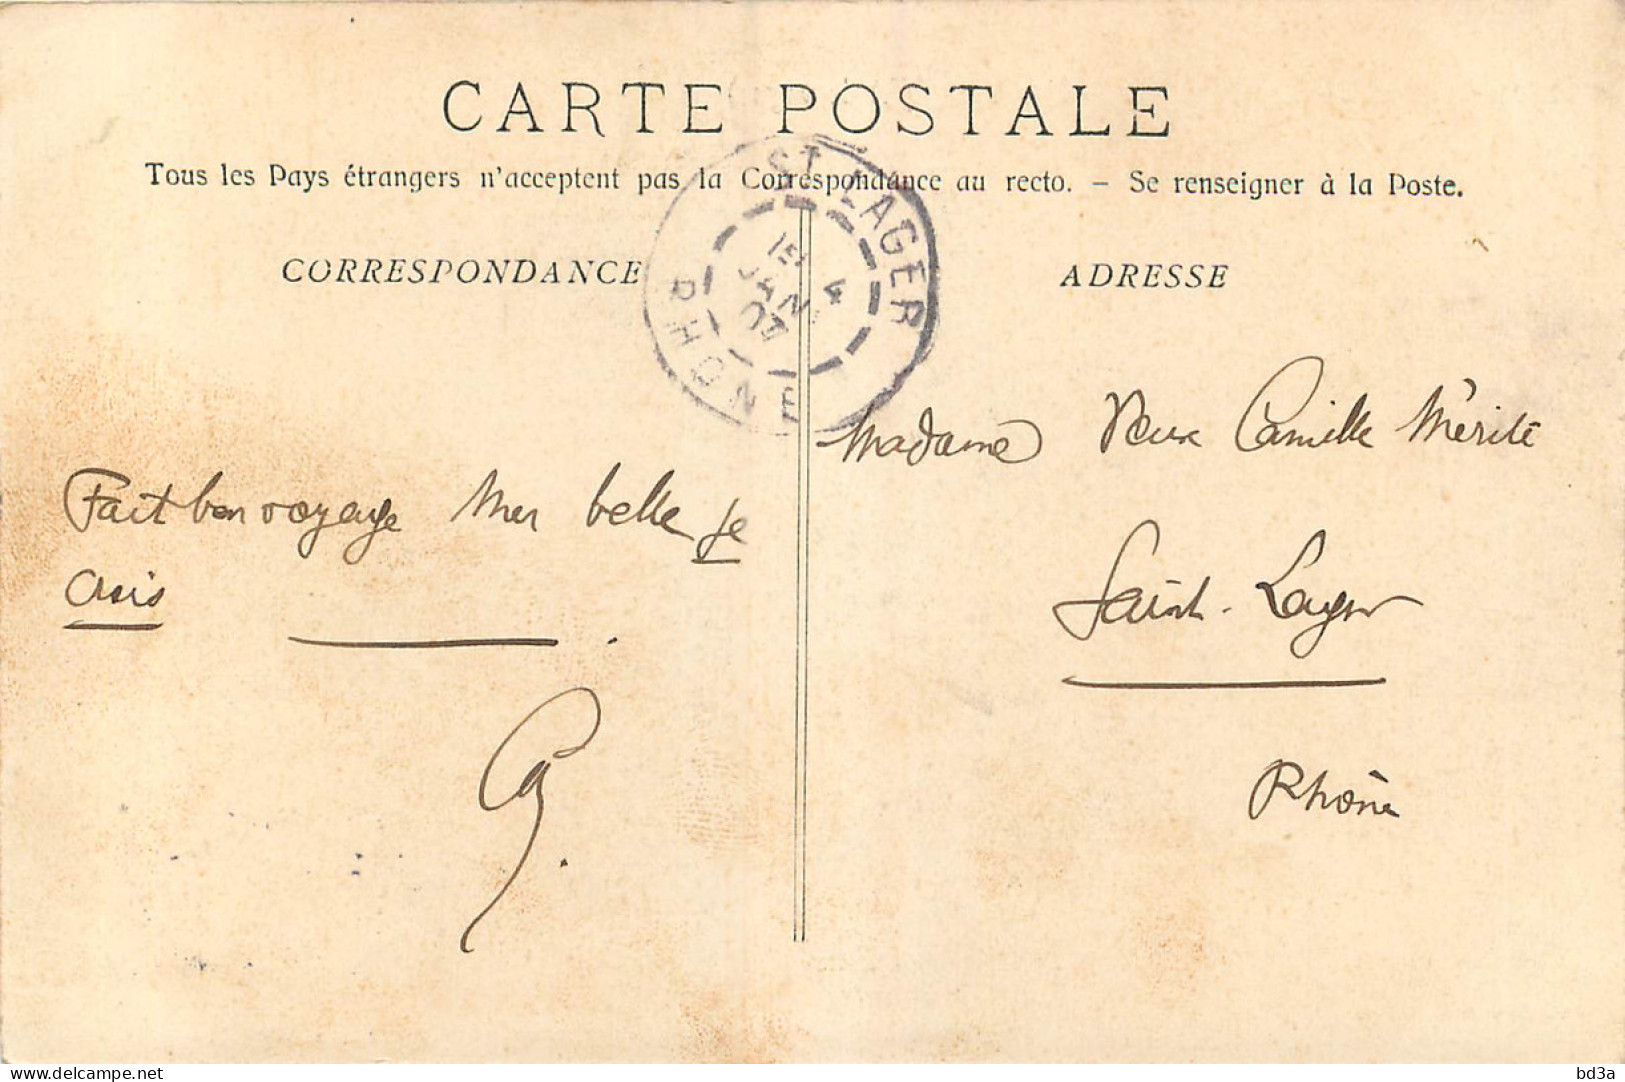 CARTE POSTALE
Tous les Pays étrangers n'acceptent pas la Correspondance au recto. – Se renseigner à la Poste.
CORRESPONDANCE
ADRESSE
ST LAGER
RHONE
15
4
JANV
Fait bon voyage Mer belle je
crois
Madame Veuve Camille Mérité
Saint-Lager
Rhône
delcampe.net
bd3a